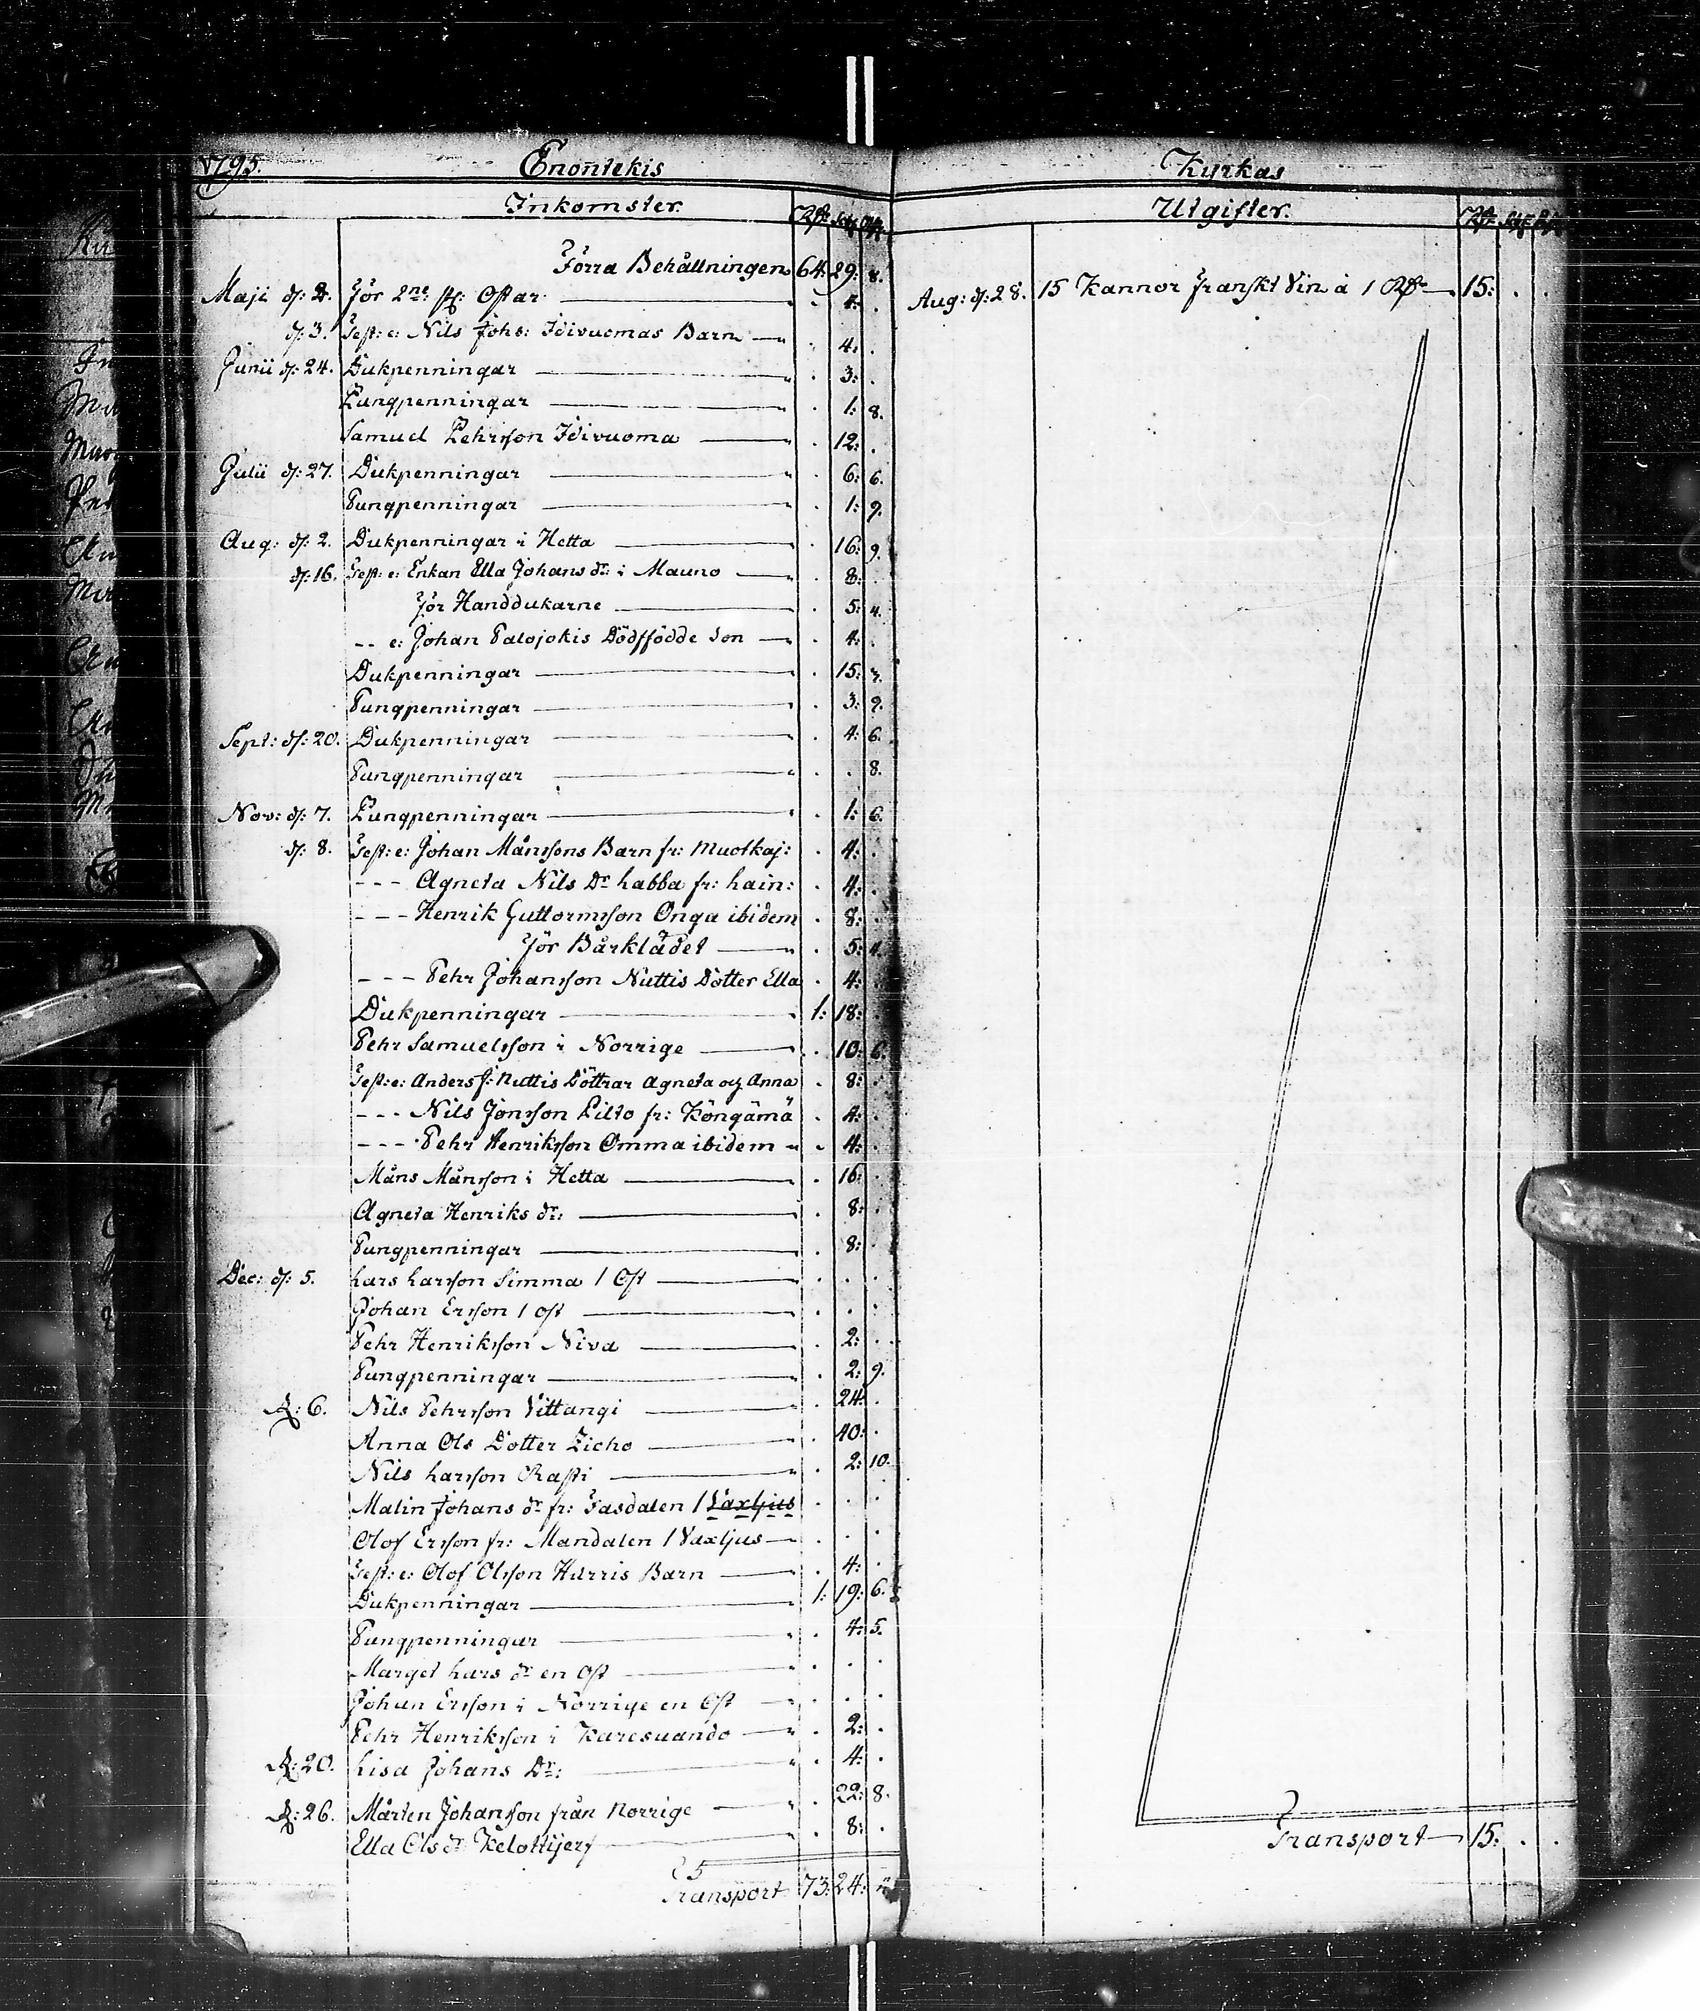 1795. Enontekis
Inkomster. Rdr Sk: rst:
Förra Behållningen 64: 29: 8.
Maji d: 2. För 2ne st: Ostar . 4: .
d: 3. Test: e: Nils Johs: Idivuomas Barn . 4: .
Junii d: 24. Dukpenningar . 3: .
Pungpenningar . 1: 8.
Samuel Pehrsson Idivuoma . 12: .
Julii d: 27. Dukpenningar . 6: 6.
Pungpenningar . 1: 9.
Aug: d: 2. Dukpenningar i Hetta . 16: 9.
d: 16. Test: e: Enkan Ella Johans dr: i Mauno . 8: .
För Handdukarne . 5: 4.
-- e: Johan Palojokis Dödfödde Son . 4: .
Dukpenningar . 15: 7.
Pungpenningar . 3: 9.
Sept: d: 20. Dukpenningar . 4: 6.
Pungpenningar . . 8.
Nov: d: 7. Pungpenningar . 1: 6.
d: 8. Test: e: Johan Månssons Barn fr: Muotkaj: . 4: .
--- Agneta Nils Dr Labba fr: Lain: . 4: .
--- Henrik Guttormsson Onga ibidem . 8: .
För Bårklädet . 5: 4.
--- Pehr Johansson Nuttis Dotter Ella . 4: .
Dukpenningar 1: 18: .
Pehr Samuelsson i Norrige . 10: 6.
Test: e: Anders J: Nuttis Döttrar Agneta och Anna . 8: .
--- Nils Jonsson Pilto fr: Köngämä . 4: .
--- Pehr Henriksson Omma ibidem . 4: .
Måns Månsson i Hetta . 16: .
Agneta Henriks dr: . 8: .
Pungpenningar . 8: .
Dec: d: 5. Lars Larsson Simma 1 Ost . . .
Johan Ersson 1 ost . . .
Pehr Henriksson Niva . 2: .
Pungpenningar . 2: 9.
d: 6. Nils Pehrsson Vittangi . 24: .
Anna Ols Dotter Zicko . 40: .
Nils Larsson Rasti . 2: 10.
Malin Johans dr fr: Fasdalen 1 Vaxljus . . .
Olof Ersson fr: Mandalen 1 Vaxljus . . .
Test: e: Olof Olsson Hurris Barn . 4: .
Dukpenningar 1: 19: 6.
Pungpenningar . 4: 5.
Marget Lars dr en Ost . . .
Johan Ersson i Norrige en Ost . . .
Pehr Henriksson i Karesuando . 2: .
d: 20. Lisa Johans Dr: . 4: .
d: 26. Mårten Johansson från Norrige . 22: 8.
Ella Ols dr Kelottijerf . 8: .
Transport 73: 24:
Kyrkas
Utgifter. Rdr Sk: rst:
Aug: d: 28. 15 Kannor franskt Vin à 1 Rdr 15: . .
Transport 15: . .